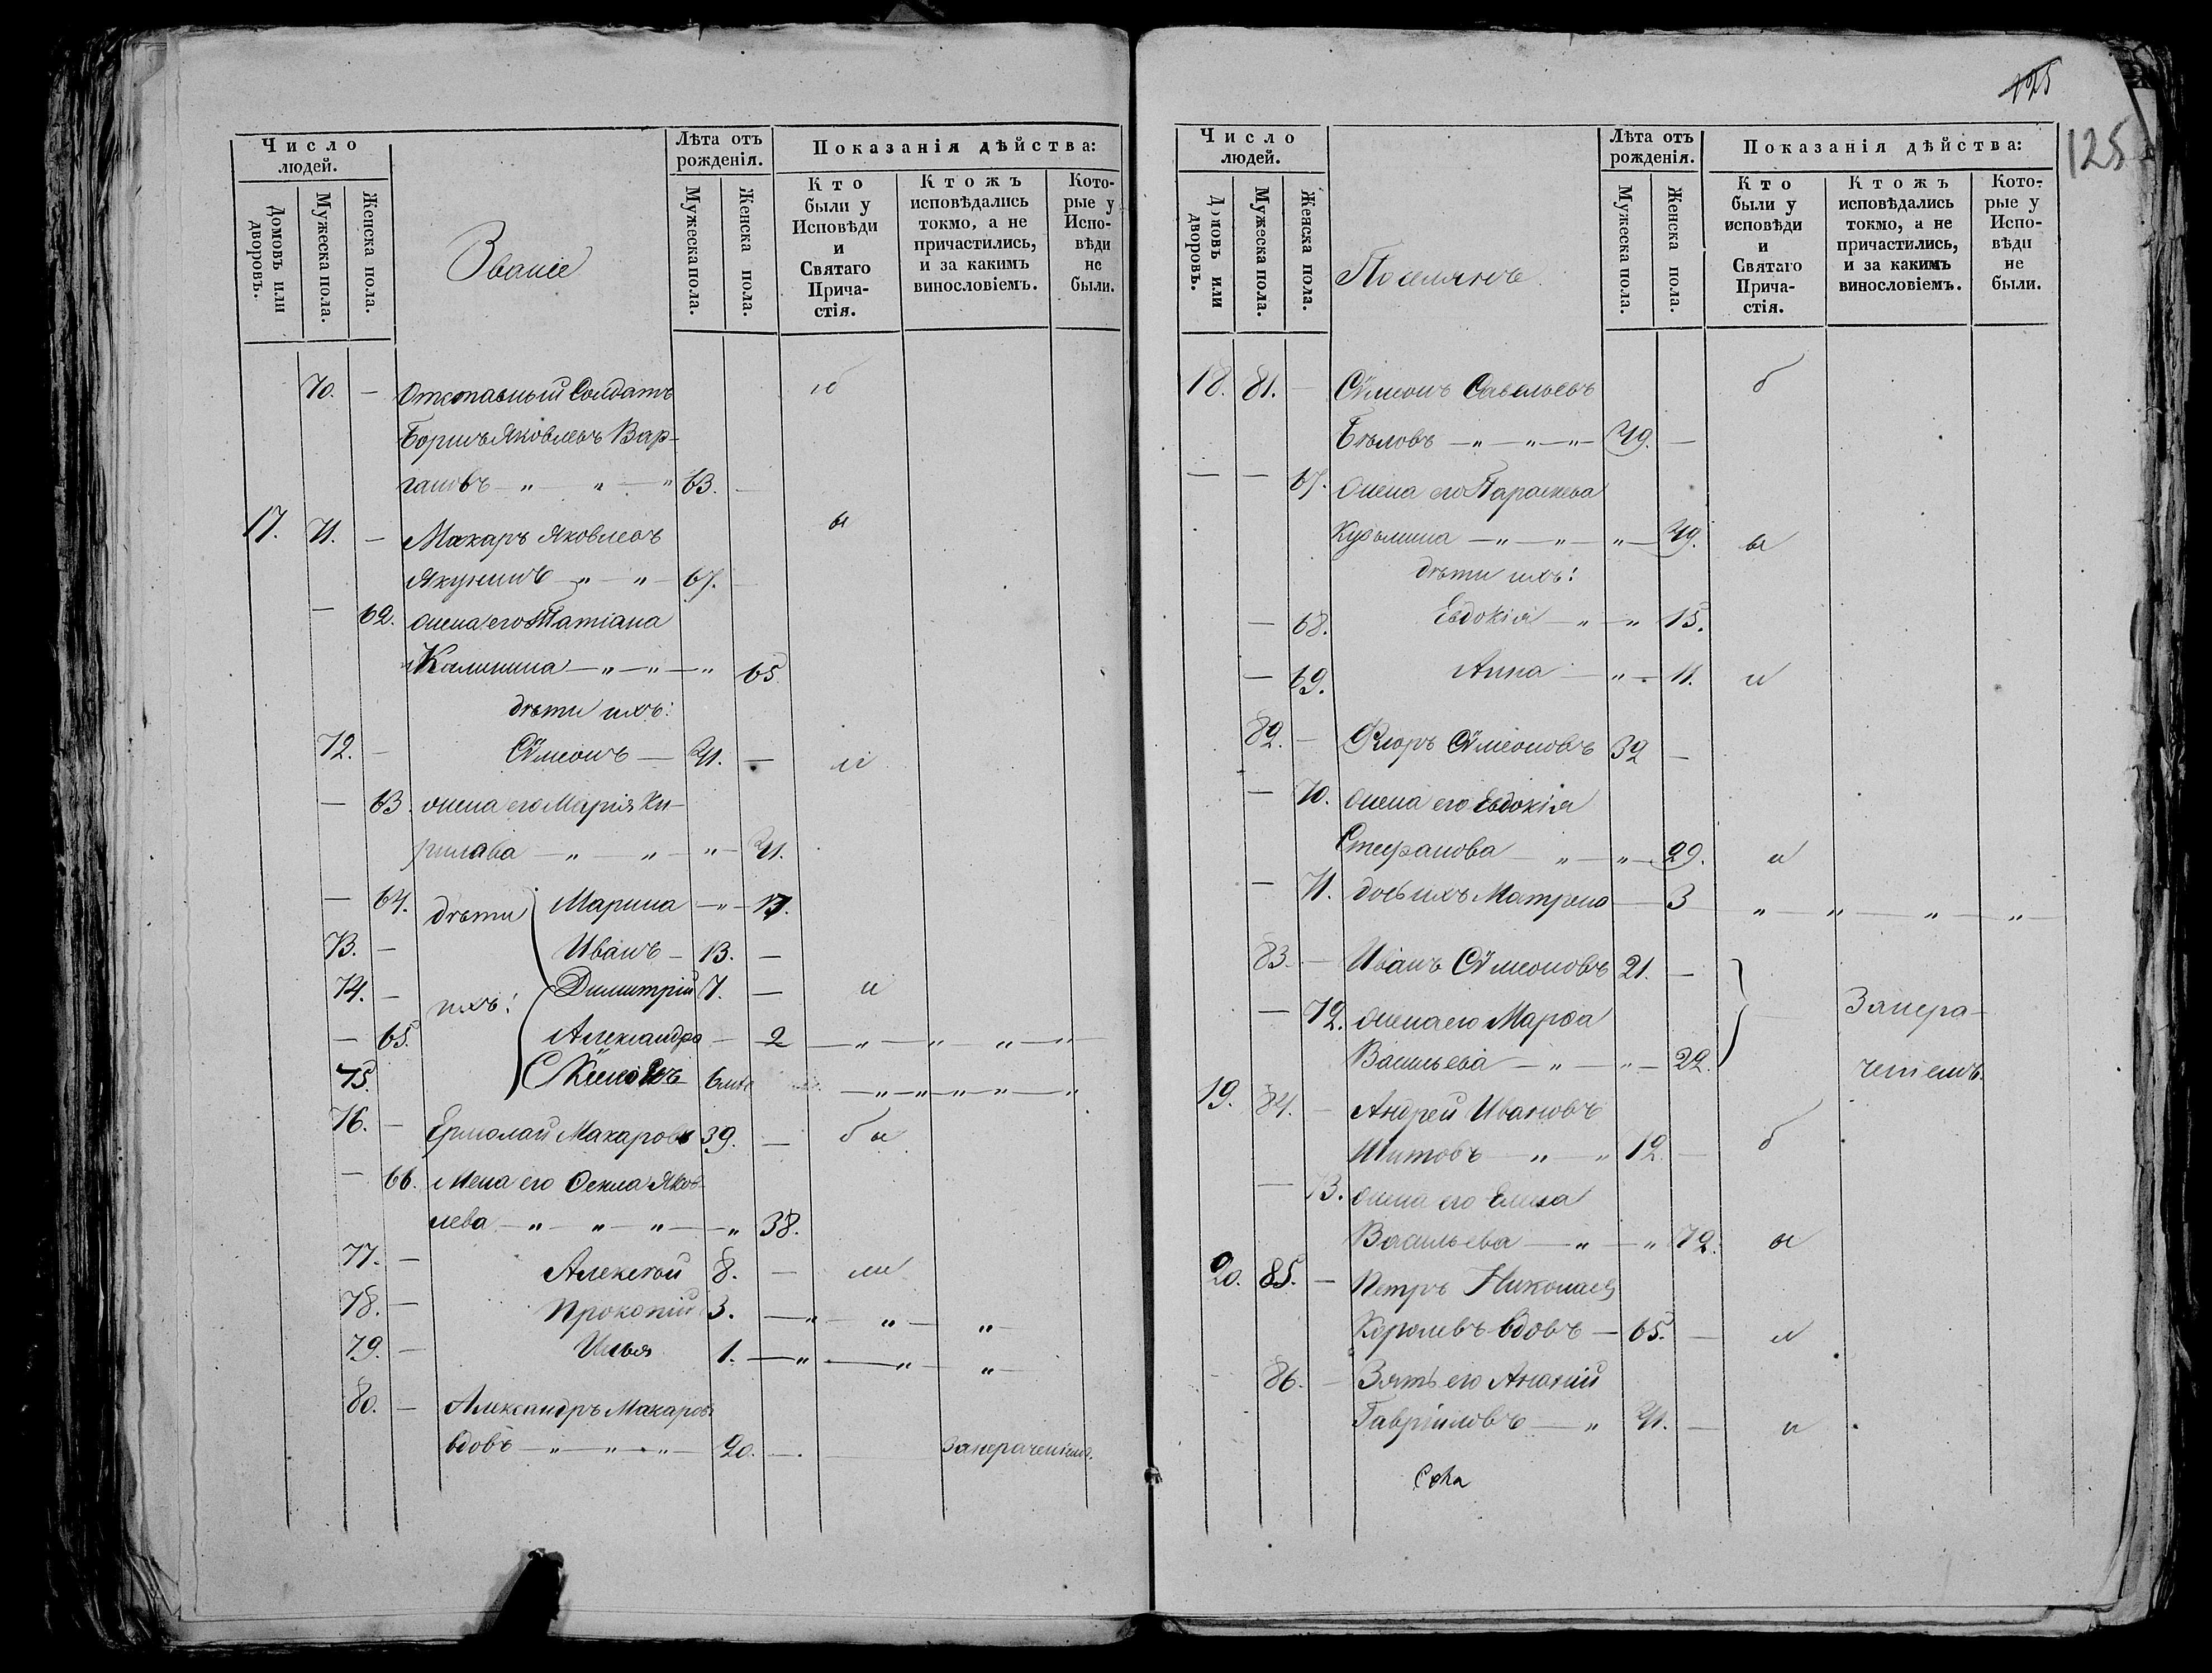 Число людей.
Домовъ или дворовъ.
Мужеска пола.
Женска пола.
Званіе
Лѣта отъ рожденія.
Мужеска пола.
Женска пола.
Показанія дѣйства:
Кто были у Исповѣди и Святаго Прича-стія.
Ктожъ исповѣдались токмо, а не причастились, и за какимъ винословіемъ.
Кото-рые у Испо-вѣди не были.
70. — Отставный Солдатъ
Борисъ Яковлевъ Вар-
гановъ — " — " — " 63. —
17. 71. — Макаръ Яковлевъ
Якунинъ — " — " — 67. —
— 62. жена его Татіана
Калинина — " — " — " 65
дѣти ихъ:
72. — Сѵмеонъ — 41. — и
— 63. жена его Марія Ки-
рилова — " — " — " — 41.
— 64. дѣти Марина — " — 17.
73. — Иванъ — 13. —
74. — ихъ: Димитрій 7. — и
— 65. Александра — 2 — " — " — " — "
75.
76. — Ермолай Макаровъ 39. — бы
— 66. Жена его Ѳекла Яков-
лева — " — " — " — " 38.
77. — Алексѣй 8. — ли
78. — Прокопій 3. — " — " — " —
79. — Илья 1. — " — " — " —
80. — Александръ Макаровъ
вдовъ — " — " — " — 20. — запераченіемъ.
125
125
Число людей.
Домовъ или дворовъ.
Мужеска пола.
Женска пола.
Поселянъ
Лѣта отъ рожденія.
Мужеска пола.
Женска пола.
Показанія дѣйства:
Кто были у исповѣди и Святаго Прича-стія.
Ктожъ исповѣдались токмо, а не причастились, и за какимъ винословіемъ.
Кото-рые у Испо-вѣди не были.
18. 81. — Сѵмеонъ Савельевъ б
Бѣловъ — " — " — " — 49. —
— — 67. жена его Параскева
Кузьмина — " — " — " — 49. ы
дѣти ихъ:
— 68. Евдокія — " — " 15.
— 69. Анна — " — 11. и
82. — Флоръ Сѵмеоновъ 32 —
— 70. жена его Евдокія
Стефанова — " — " — 29. и
— 71. дочь ихъ Матрена — 3 — " — " — " — " —
83. — Иванъ Сѵмеоновъ 21. —
— 72. жена его Марѳа Запера-
Васильева — " — " — 22. ченіемъ.
19. 84. — Андрей Ивановъ
Шитовъ — " — " 72. — б
— 73. жена его Елена
Васильева — " — " 72. ы
20. 85. — Петръ Николаев
Королевъ вдовъ — 65. — л
86. — Зять его Ананій
Гавріиловъ — " 41. — и